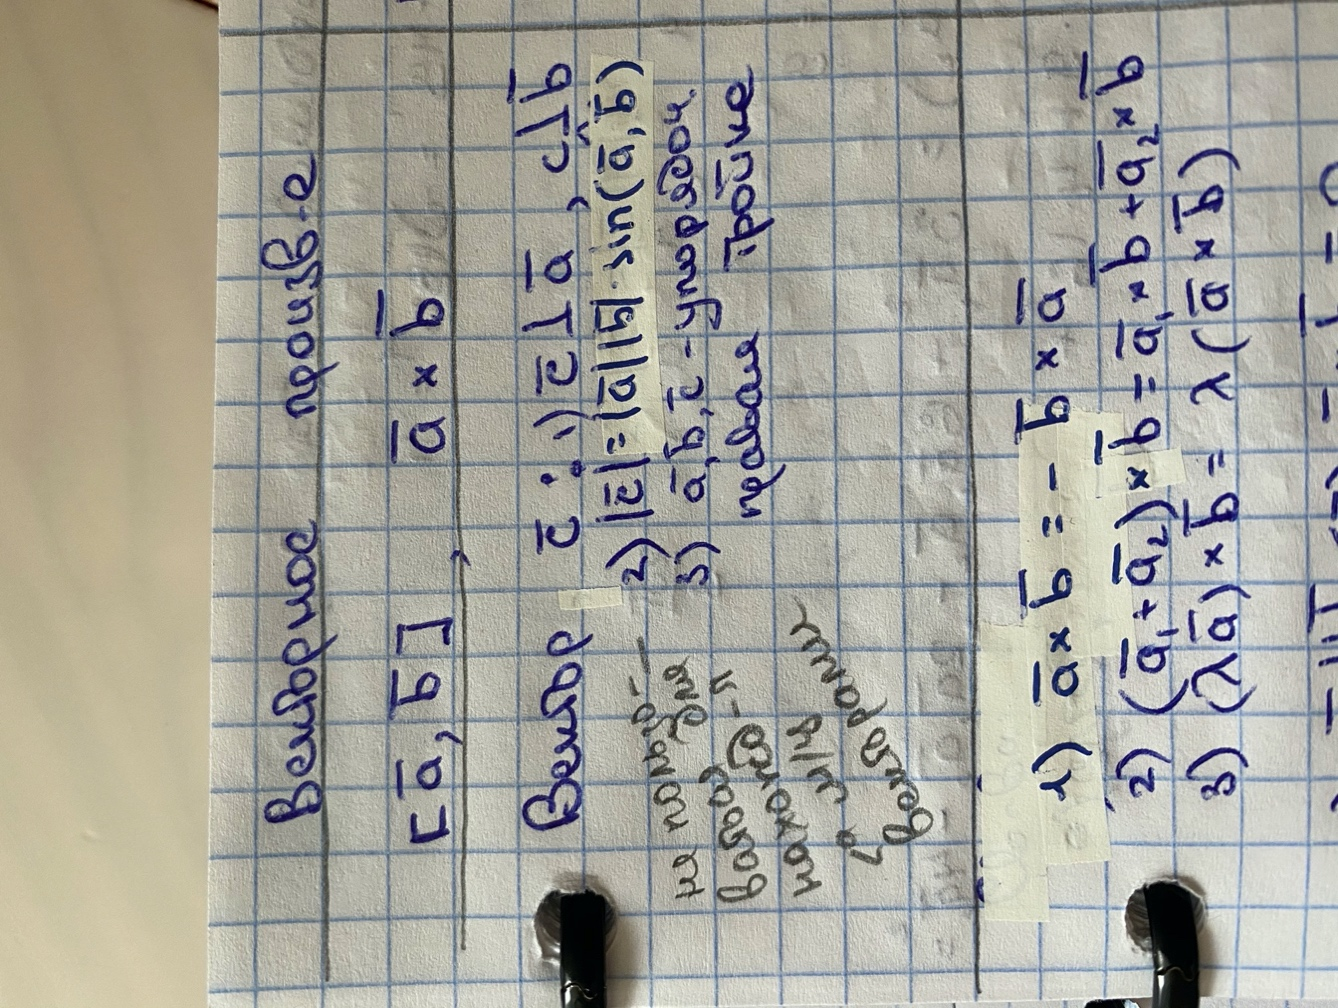 Векторное произв-е
[a̅, b̅], a̅ × b̅
Вектор c̅ : 1) c̅ ⊥ a̅, c ⊥ b̅
2) |c̅| = |a̅||b̅| · sin(a̅,^ b̅)
3) a̅, b̅, c̅ - упорядоч.
правая тройка
не польζо-
ваться для
нахожд-я
∠ м/у
векторами
1) a̅ × b̅ = - b̅ × a̅
2) (a̅₁ + a̅₂) × b̅ = a̅₁ × b̅ + a̅₂ × b̅
3) (λa̅) × b̅ = λ(a̅ × b̅)